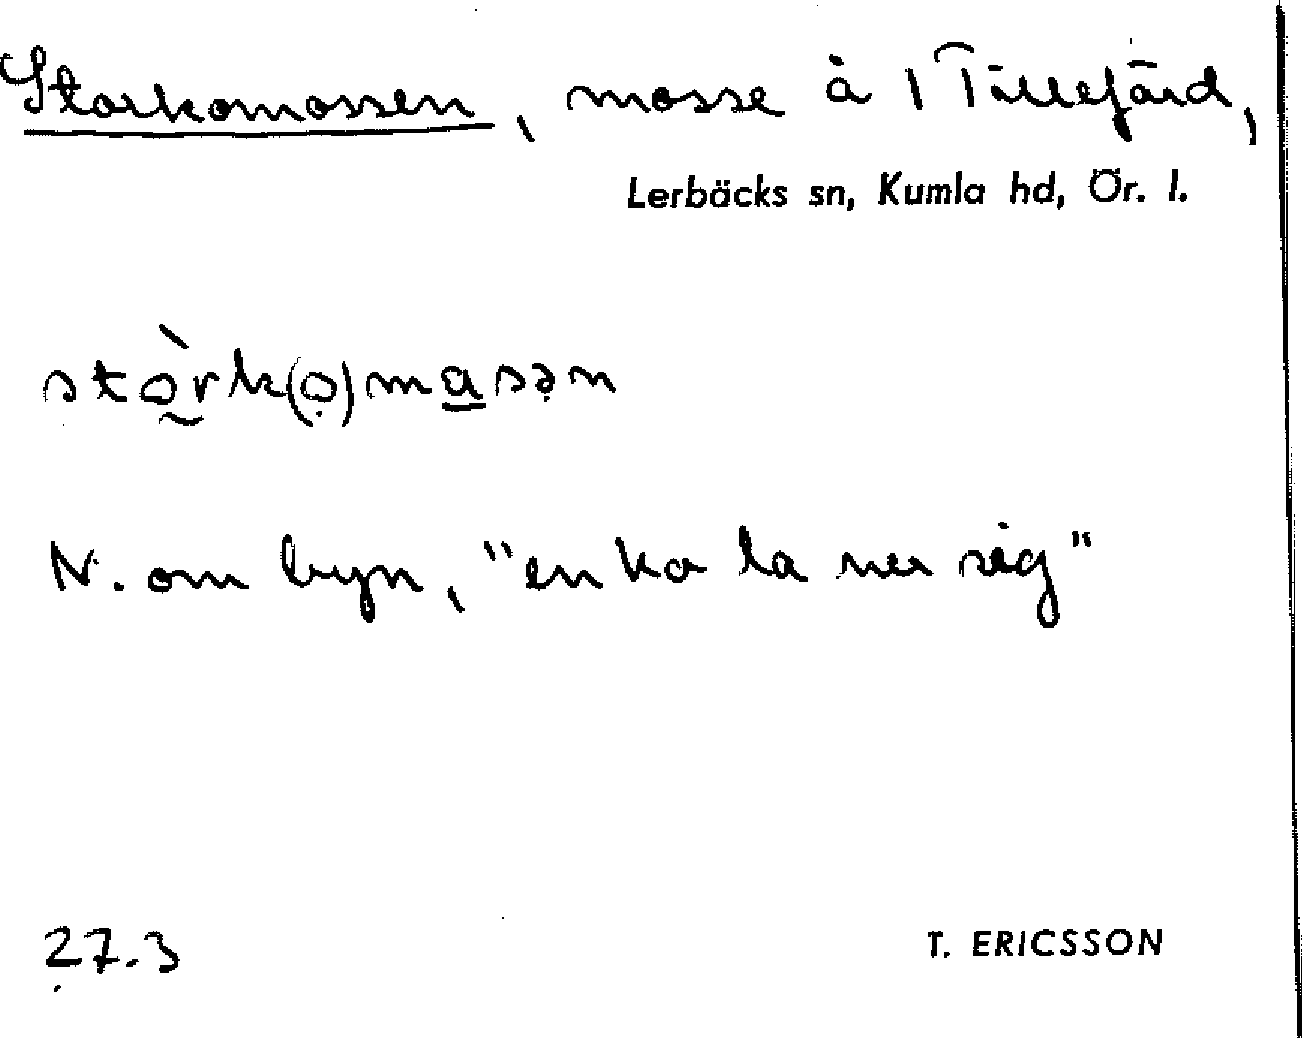 Storkomossen, mosse å 1 Tillefärd,
Lerbäcks sn, Kumla hd, Ör. l.
stòrk(o)masən
N. om byn, "en ka la ner sig"
27.3
T. ERICSSON